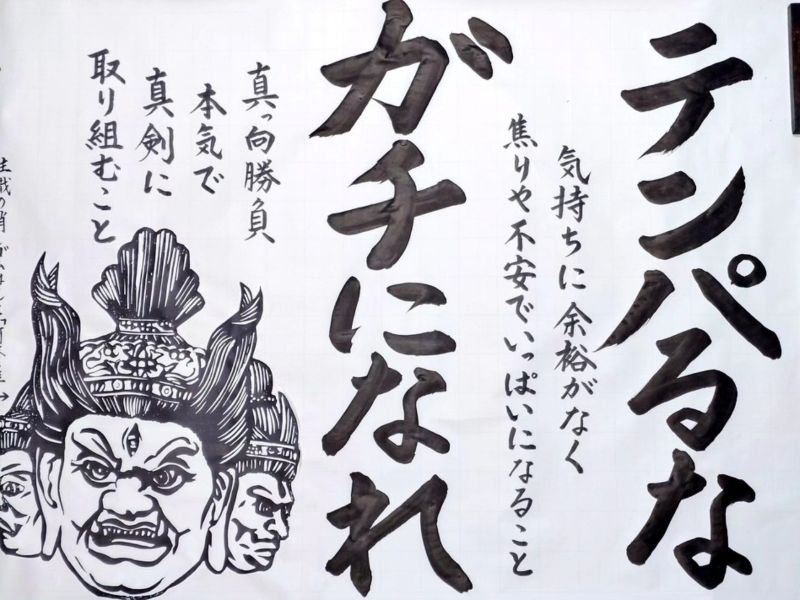 テンパるな
気持ちに余裕がなく
焦りや不安でいっぱいになること
ガチになれ
真っ向勝負
本気で
真剣に
取り組むこと